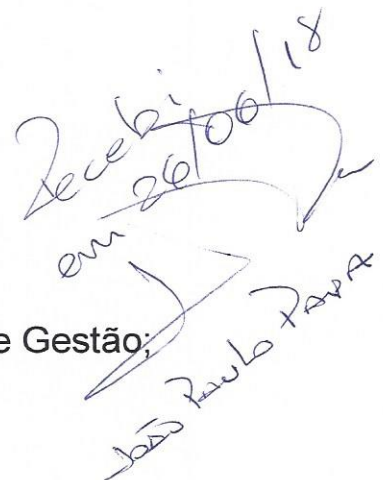 Recebi
em 26/06/18
e Gestão;
João Paulo Papa